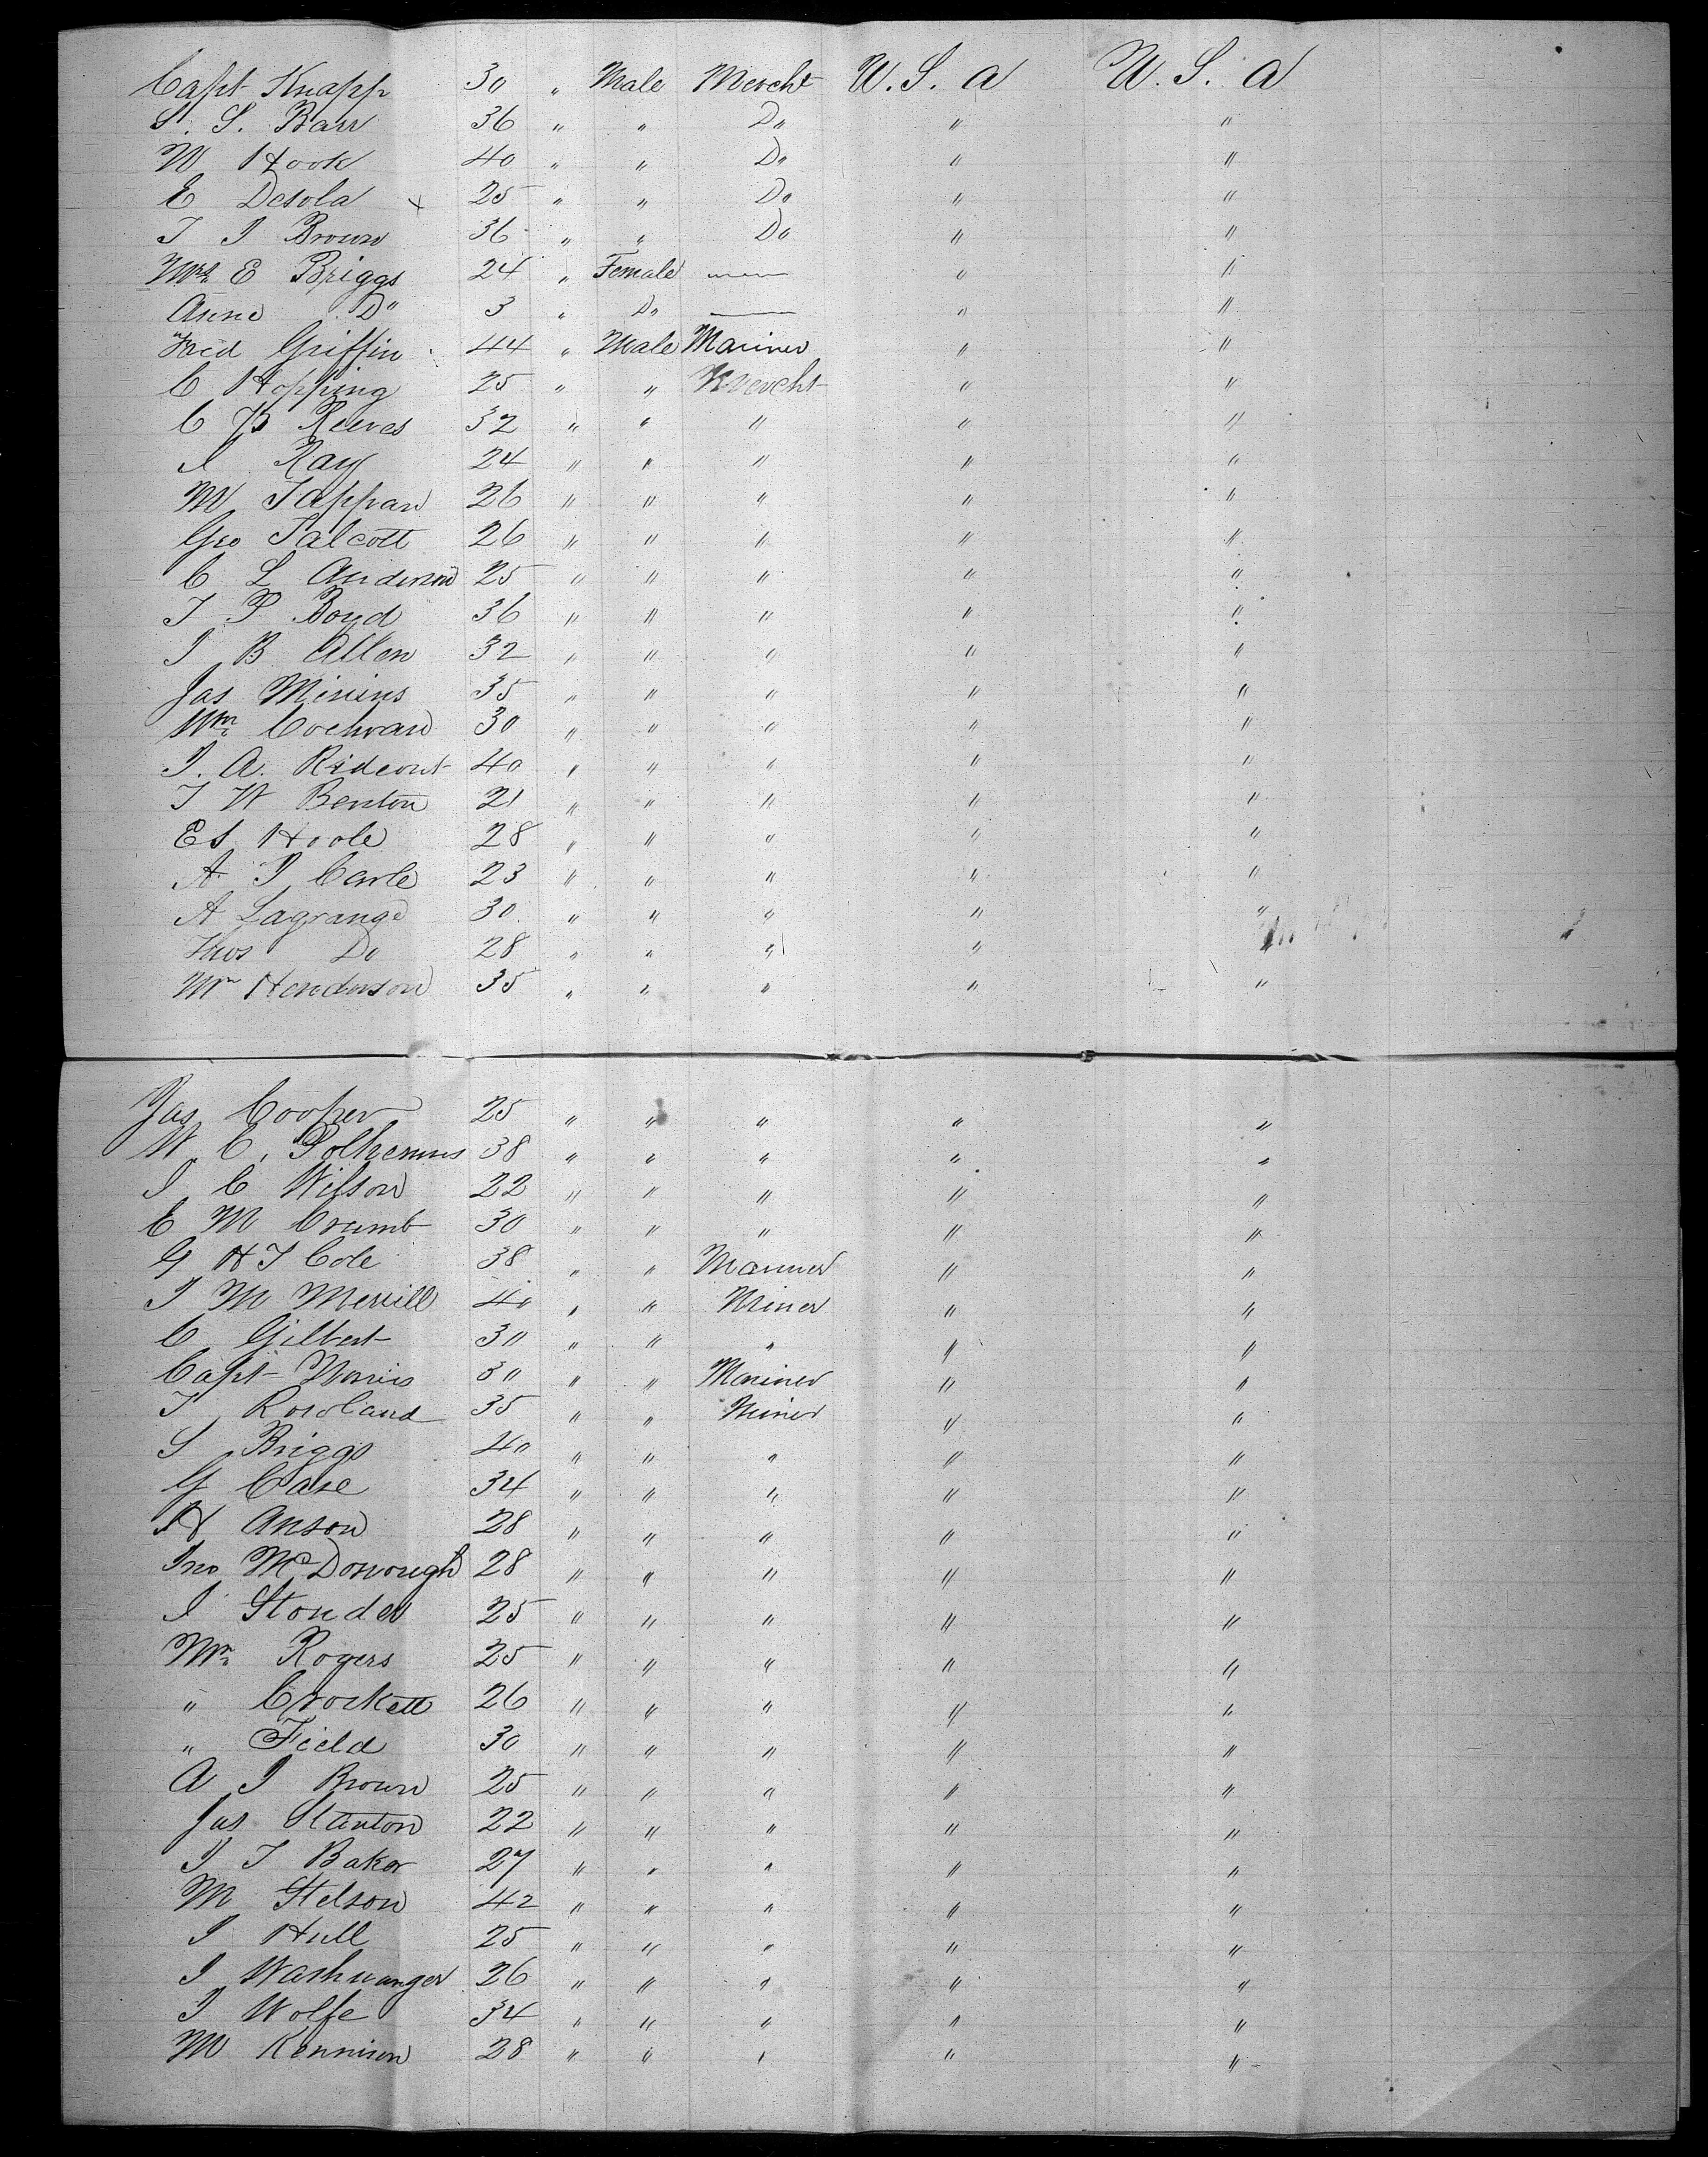 Capt Knapp 30 " Male Mercht U. S. a U. S. a
S. S. Barr 36 " " Do " "
W Hook 40 " " Do " "
E Desola x 25 " " Do " "
J J Brown 36 " " Do " "
Mrs E Briggs 24 " Female — " "
Anne Do 3 " Do — " "
Griffin 44 " Male Mariner " "
C Hopping 25 " " Mercht " "
C B Reeves 32 " " " " "
J Ray 24 " " " " "
W Tappan 26 " " " " "
Geo Talcott 26 " " " " "
C L Anderson 25 " " " " "
J P Boyd 36 " " " " "
J B Allen 32 " " " " "
Jas Minins 35 " " " " "
Wm Cochran 30 " " " " "
J. A. Rideout 40 " " " " "
J W Benton 21 " " " " "
E S Hoole 28 " " " " "
A J Carle 23 " " " " "
A Lagrange 30 " " " " "
Thos Do 28 " " " " "
Mr Henderson 35 " " " " "
Jas Cooper 25 " " " " "
W C. Polhemus 38 " " " " "
J C Wilson 22 " " " " "
E M Crumb 30 " " " " "
G H J Cole 38 " " Mariner " "
J M Merrill 40 " " Miner " "
C Gilbert 30 " " " " "
Capt Norris 30 " " Mariner " "
J Rowland 35 " " Miner " "
S Briggs 40 " " " " "
G Case 34 " " " " "
H Anson 28 " " " " "
Jno McDonough 28 " " " " "
J Stonder 25 " " " " "
Mr Rogers 25 " " " " "
" Crockett 26 " " " " "
" Field 30 " " " " "
A J Brown 25 " " " " "
Jas Stanton 22 " " " " "
J T Baker 27 " " " " "
M Stelson 42 " " " " "
J Hull 25 " " " " "
J 26 " " " " "
J Wolfe 34 " " " " "
M Kennison 28 " " " " "